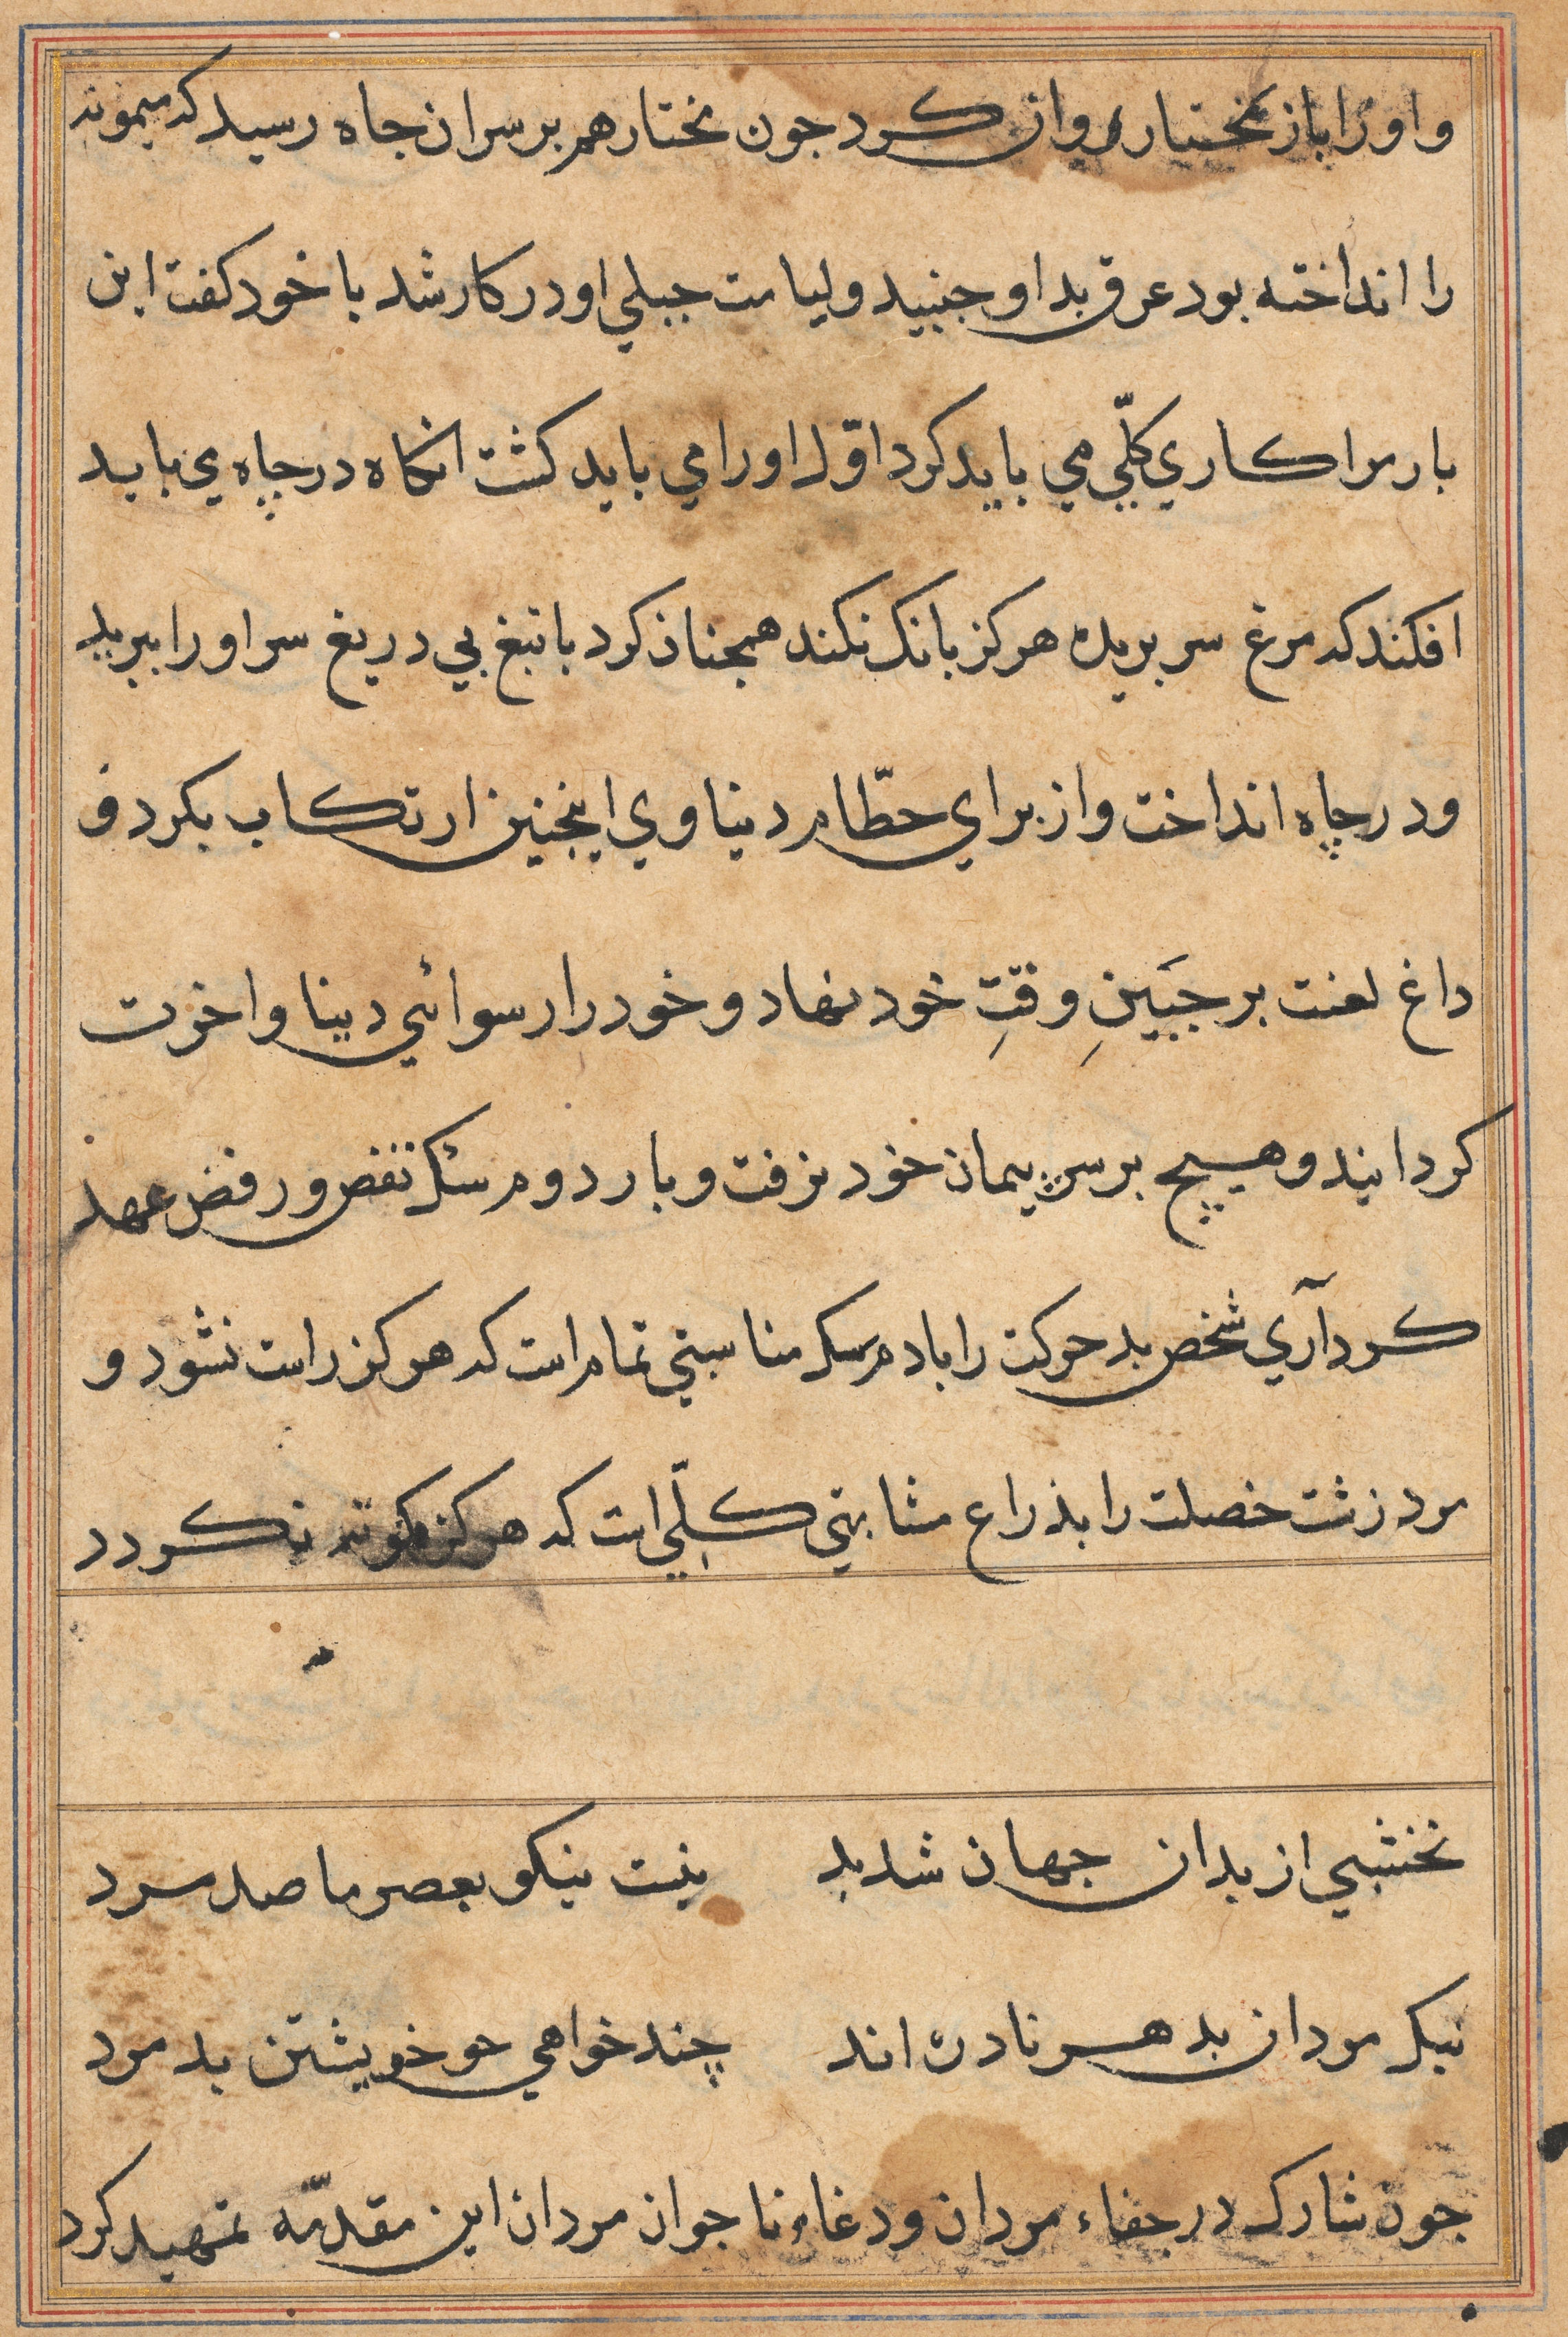 و او را باز بختار روان کرد جون مختار هم بر سر ان جاه رسید که میمونه
را انداخته بود عرق بد او جنبید و لیامت جبلي او در کار شد با خود کفت این
بار مرا کاري کلّي مي باید کرد اوّل او را مي باید کشت انکاه در چاه می باید
افکند که مرغ سر بریده هرکز بانک نکند همجنان کرد با تیغ بي دریغ سر او را ببرید
و در چاه انداخت و از براي حطّام دنیاوي اینجنین ارتکاب بکرد و
داغ لعنت بر جبَینِ وقتِ خود نهاد و خود را رسوائي دینا و اخرت
کردانید و هیچ بر سر پیمان خود نرفت و بار دوم سئک نقض و رفض عهد
کرد آري شخص بد حرکت را با دم سک مناسبتي تمام است که هرکز راست نشود و
مرد زشت خصلت را بذراع مشابهتي کلّي است که هرکز نکوتر نکردد
نخشبي از بدان جهان شد بد نیست نیکو بعصر ما صد مرد
نیک مردان بدهر نادره اند چند خواهي جو خویشتن بد مرد
جون شارک در جفاء مردان و دغاء نا جوان مردان این مقدمّه تمهید کرد